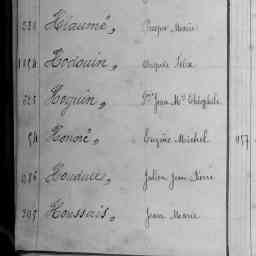 Heaumé, Prosper Marie
Hodouin, Auguste Félix
Hoguin, Jean Mie Théophile
Honoré, Eugène Michel 957
Houdusse, Julien Jean Pierre
Houssais, Jean Marie